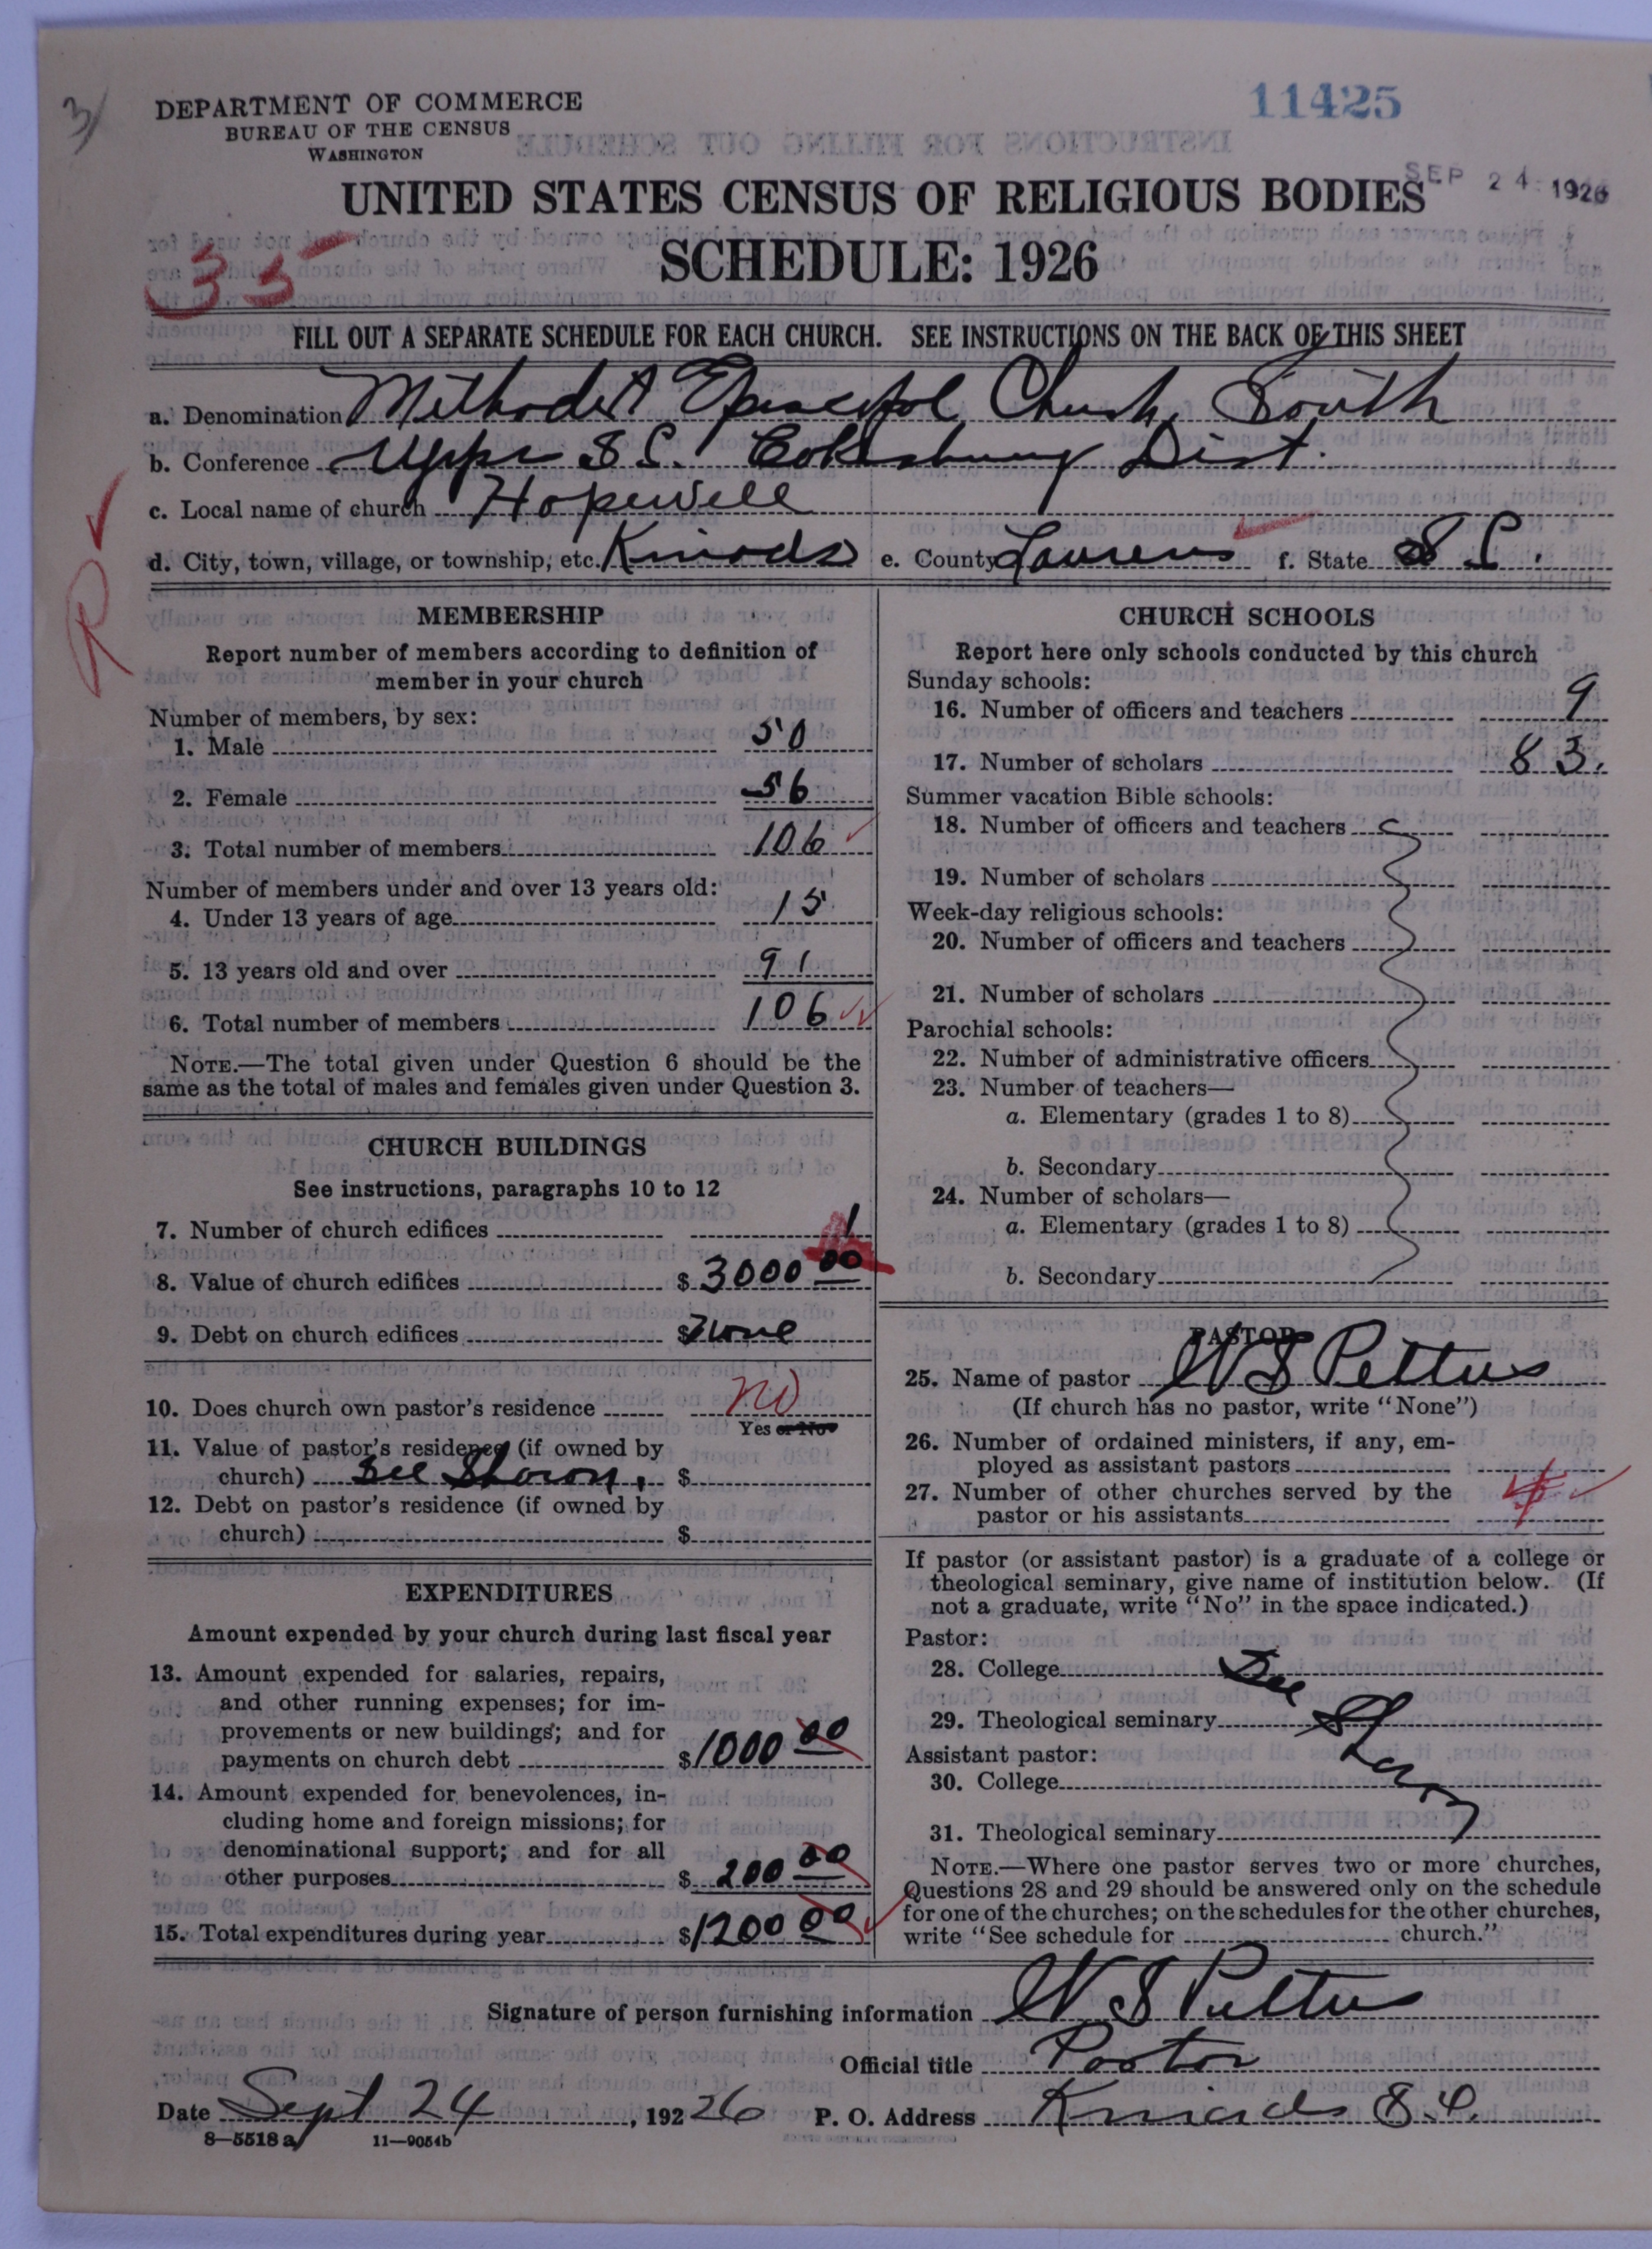 3/
11425
DEPARTMENT OF COMMERCE
BUREAU OF THE CENSUS
WASHINGTON
SEP 24 1926
UNITED STATES CENSUS OF RELIGIOUS BODIES
SCHEDULE: 1926
35
FILL OUT A SEPARATE SCHEDULE FOR EACH CHURCH. SEE INSTRUCTIONS ON THE BACK OF THIS SHEET
a. Denomination Methodist Episcopal Church South
b. Conference Upper S C. Cokesbury Dist.
c. Local name of church Hopewell
d. City, town, village, or township, etc. Kinards e. County Laurens f. State S C.
R
MEMBERSHIP
Report number of members according to definition of
member in your church
Number of members, by sex:
1. Male 50
2. Female 56
3. Total number of members 106
Number of members under and over 13 years old:
4. Under 13 years of age 15
5. 13 years old and over 91
6. Total number of members 106
NOTE.—The total given under Question 6 should be the
same as the total of males and females given under Question 3.
CHURCH BUILDINGS
See instructions, paragraphs 10 to 12
7. Number of church edifices 1
8. Value of church edifices $ 3000 00
9. Debt on church edifices $ None
10. Does church own pastor's residence no
Yes or No
11. Value of pastor's residence (if owned by
church) See Sharon, $
12. Debt on pastor's residence (if owned by
church) $
EXPENDITURES
Amount expended by your church during last fiscal year
13. Amount expended for salaries, repairs,
and other running expenses; for im-
provements or new buildings; and for
payments on church debt $ 1000 00
14. Amount expended for benevolences, in-
cluding home and foreign missions; for
denominational support; and for all
other purposes $ 200 00
15. Total expenditures during year $ 1200 00
CHURCH SCHOOLS
Report here only schools conducted by this church
Sunday schools:
16. Number of officers and teachers 9
17. Number of scholars 83.
Summer vacation Bible schools:
18. Number of officers and teachers
19. Number of scholars
Week-day religious schools:
20. Number of officers and teachers
21. Number of scholars
Parochial schools:
22. Number of administrative officers
23. Number of teachers—
a. Elementary (grades 1 to 8)
b. Secondary
24. Number of scholars—
a. Elementary (grades 1 to 8)
b. Secondary
PASTOR
25. Name of pastor W S Pettus
(If church has no pastor, write "None")
26. Number of ordained ministers, if any, em-
ployed as assistant pastors
27. Number of other churches served by the
pastor or his assistants
If pastor (or assistant pastor) is a graduate of a college or
theological seminary, give name of institution below. (If
not a graduate, write "No" in the space indicated.)
Pastor:
28. College See
29. Theological seminary Sharon
Assistant pastor:
30. College
31. Theological seminary
NOTE.—Where one pastor serves two or more churches,
Questions 28 and 29 should be answered only on the schedule
for one of the churches; on the schedules for the other churches,
write "See schedule for church."
Signature of person furnishing information W S Pettus
Official title Pastor
Date Sept 24, 192 26 P. O. Address Kinards S. C.
8—5518 a 11—9054b